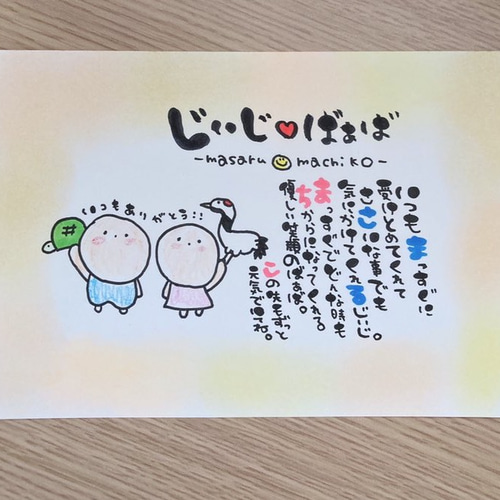 じぃじ♥ばぁば
-masaru ☺ machiko-
いつもありがとう!!
いつもまっすぐに
受けとめてくれて
ささいな事でも
気にかけてくれるじぃじ。
まっすぐでどんな時も
ちからになってくれる。
優しい笑顔のばぁば。
この先もずっと
元気で居てね。